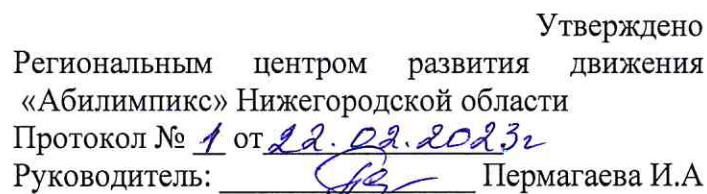 Утверждено
Региональным центром развития движения
«Абилимпикс» Нижегородской области
Протокол № 1 от 22.02.2023г
Руководитель: Пермагаева И.А